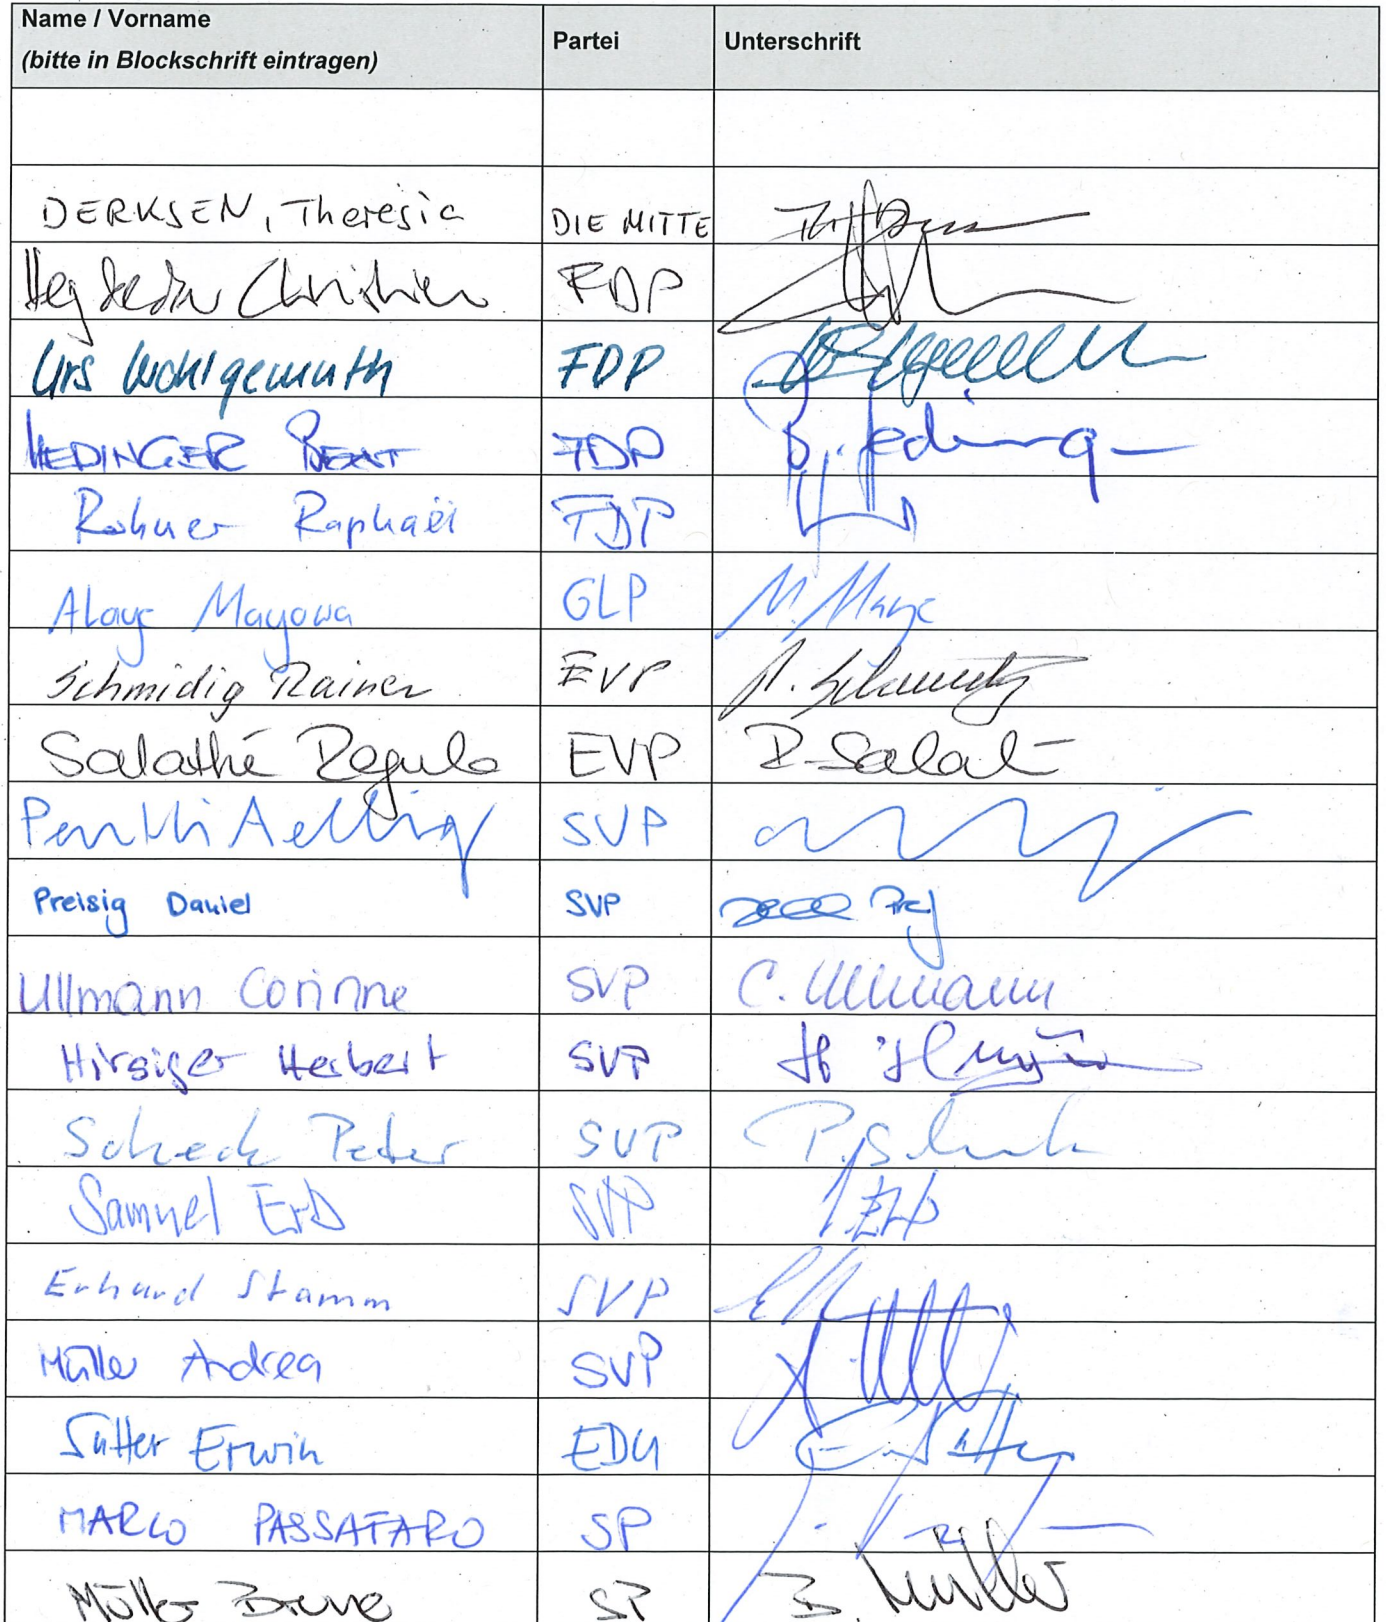 Name / Vorname
(bitte in Blockschrift eintragen)
Partei
Unterschrift
DERKSEN, Theresia DIE MITTE
Heydecker Christian FDP
Urs Wohlgemuth FDP
HEDINGER Beat FDP B. Hedinger
Rohner Raphaël FDP
Aloye Mayowa GLP M. Maye
Schmidig Rainer EVP R. Schmidig
Salathé Regula EVP R. Salathé
Pentti Aellig SVP
Preisig Daniel SVP
Ullmann Corinne SVP C. Ullmann
Hirsiger Herbert SVP
Scheck Peter SVP P. Scheck
Samuel Erb SVP S. Erb
Erhard Stamm SVP
Müller Andrea SVP
Sutter Erwin EDU E. Sutter
MARCO PASSAFARO SP
Müller Bruno SP B. Müller